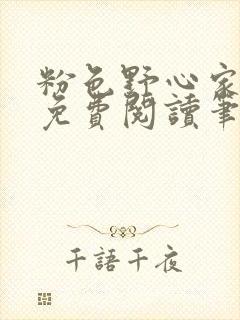 粉色野心家
免費閱讀筆
千語千夜